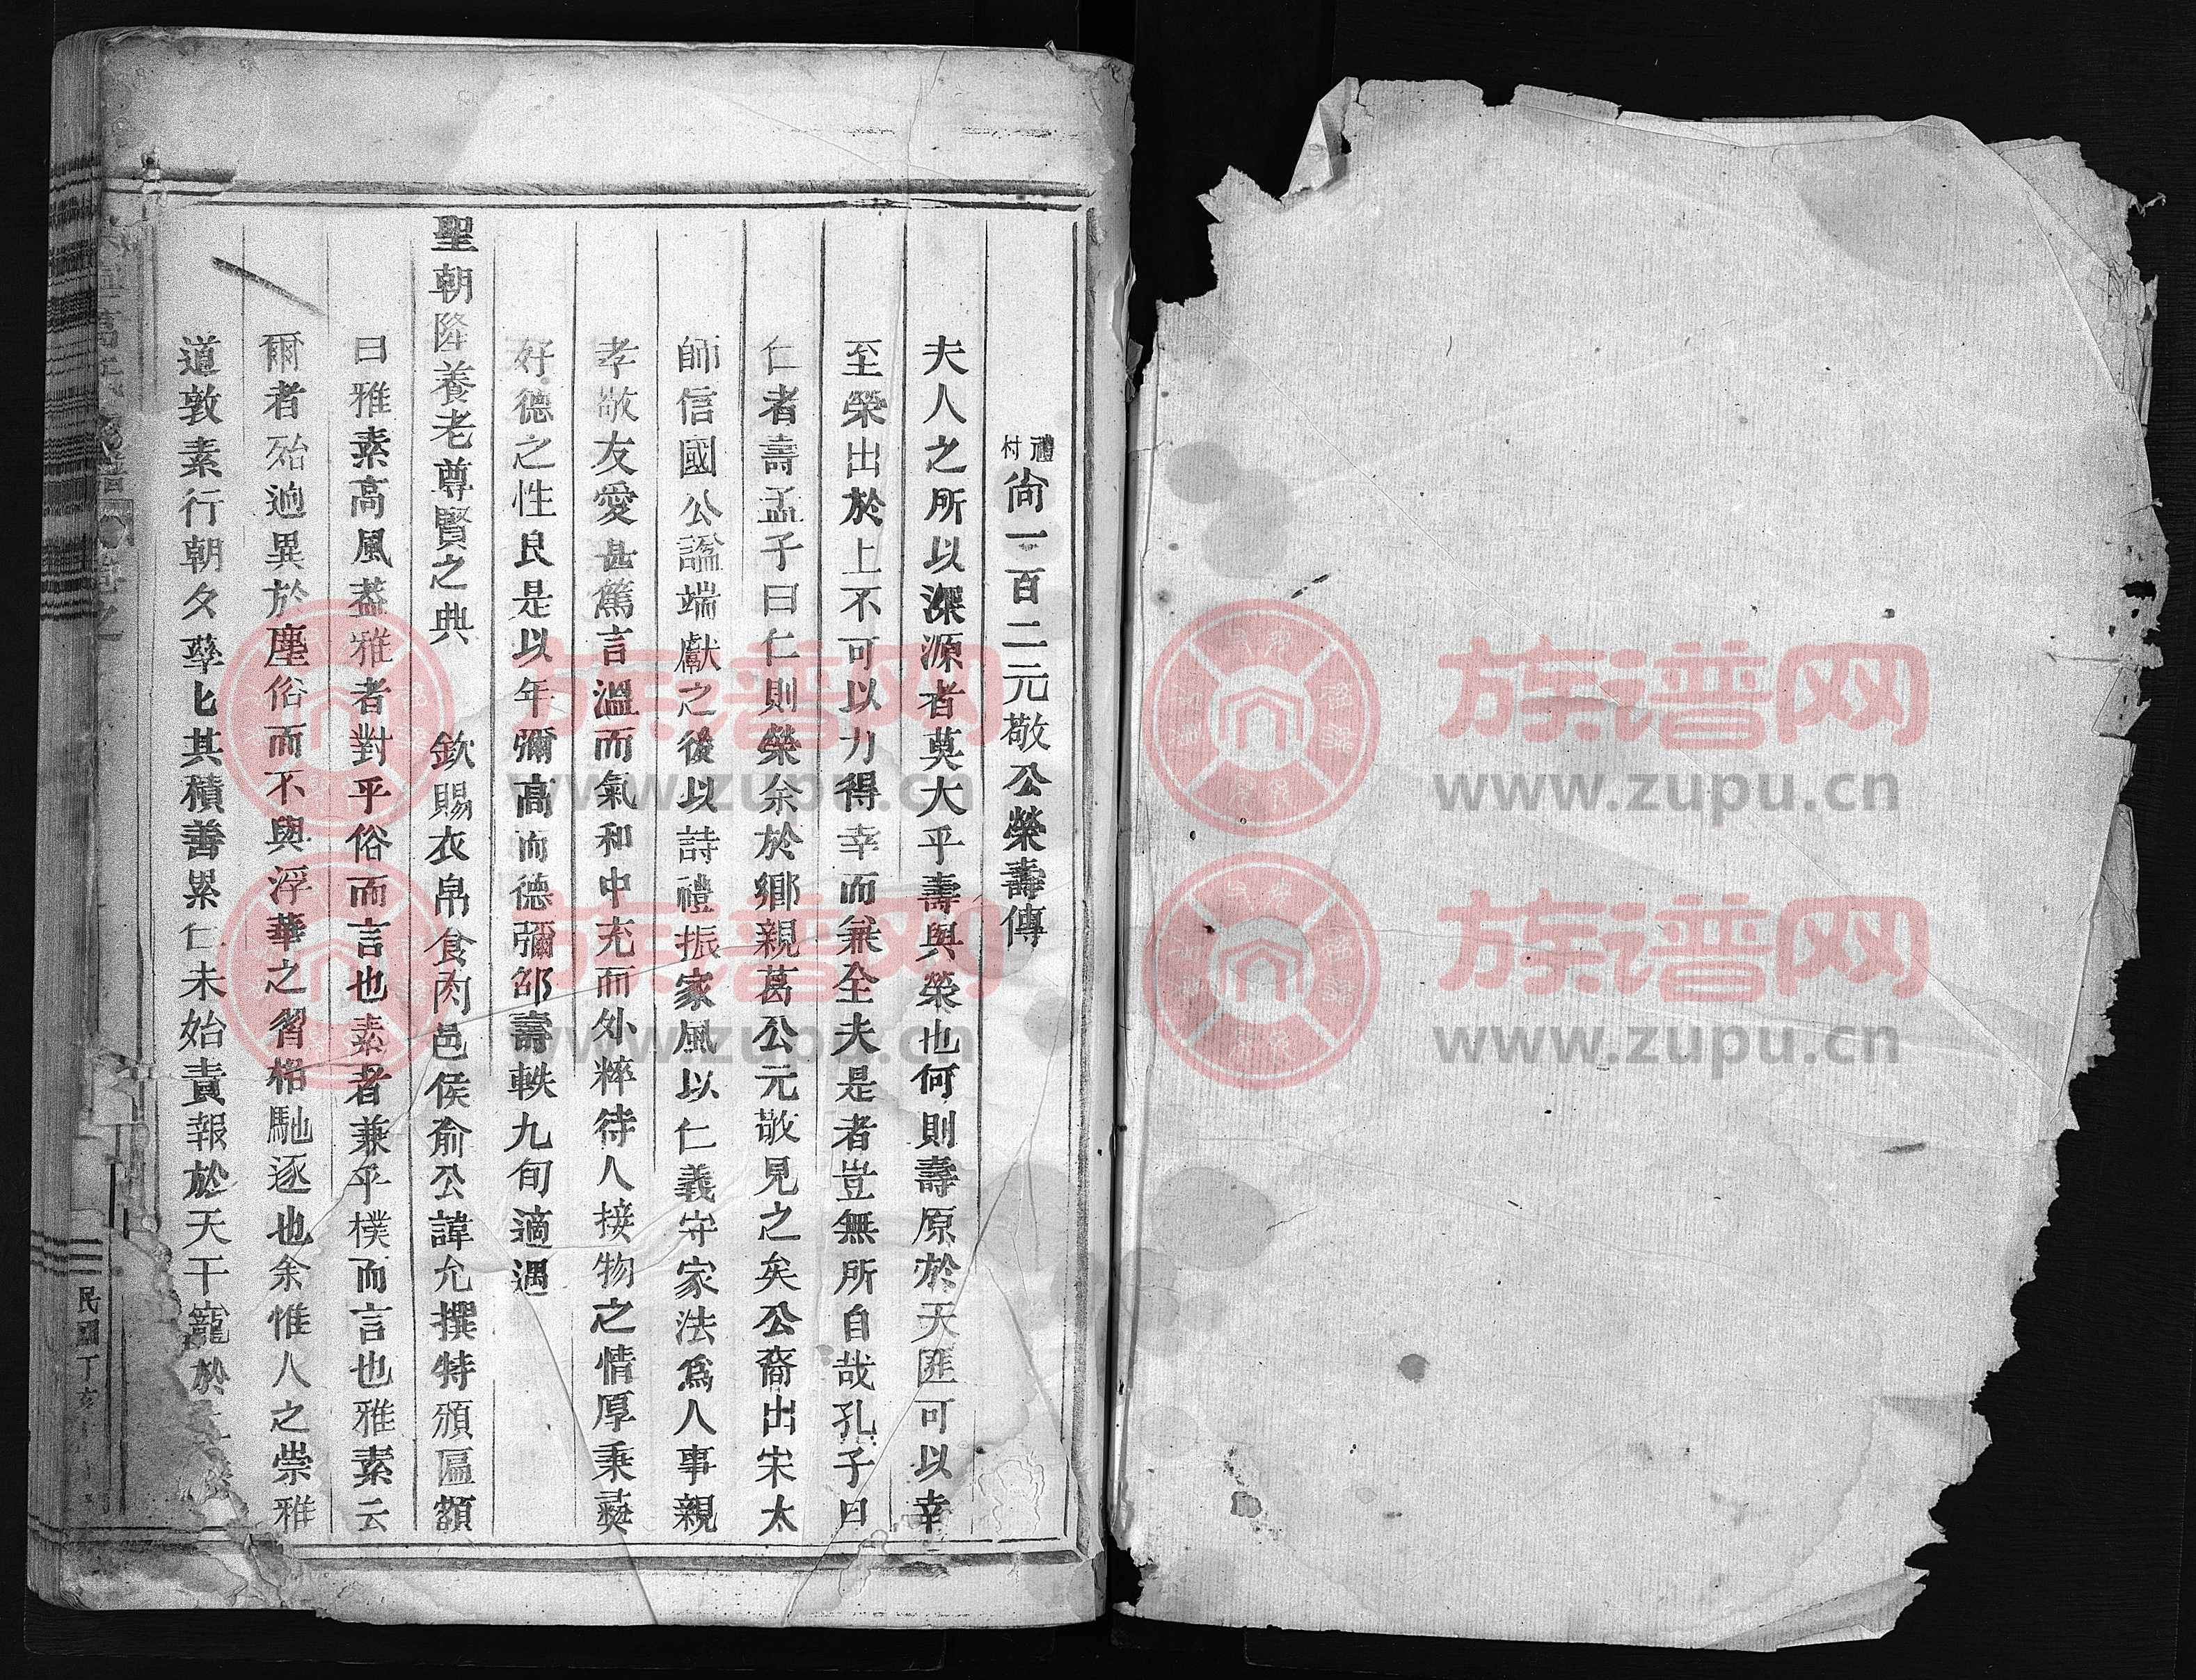 禮村尙一百二元敬公榮壽傳
夫人之所以深源者莫大乎壽與榮也何則壽原於天匪可以幸
至榮出於上不可以力得幸而兼全夫是者豈無所自哉孔子曰
仁者壽孟子曰仁則榮余於鄉親葛公元敬見之矣公裔出宋太
師信國公諡端獻之後以詩禮振家風以仁義守家法爲人事親
孝敬友愛甚篤言溫而氣和中充而外粹待人接物之情厚秉彝
好德之性良是以年彌高而德彌邵壽軼九旬適遇
聖朝隆養老尊賢之典 欽賜衣帛食肉邑侯俞公諱允撰特頒匾額
曰雅素高風葢雅者對乎俗而言也素者兼乎樸而言也雅素云
爾者殆逈異於塵俗而不與浮華之習相馳逐也余惟人之崇雅
道敦素行朝夕孳匕其積善累仁未始責報於天干寵於
民國丁亥
族谱网
www.zupu.cn
族谱网
www.zupu.cn
族谱网
www.zupu.cn
族谱网
www.zupu.cn